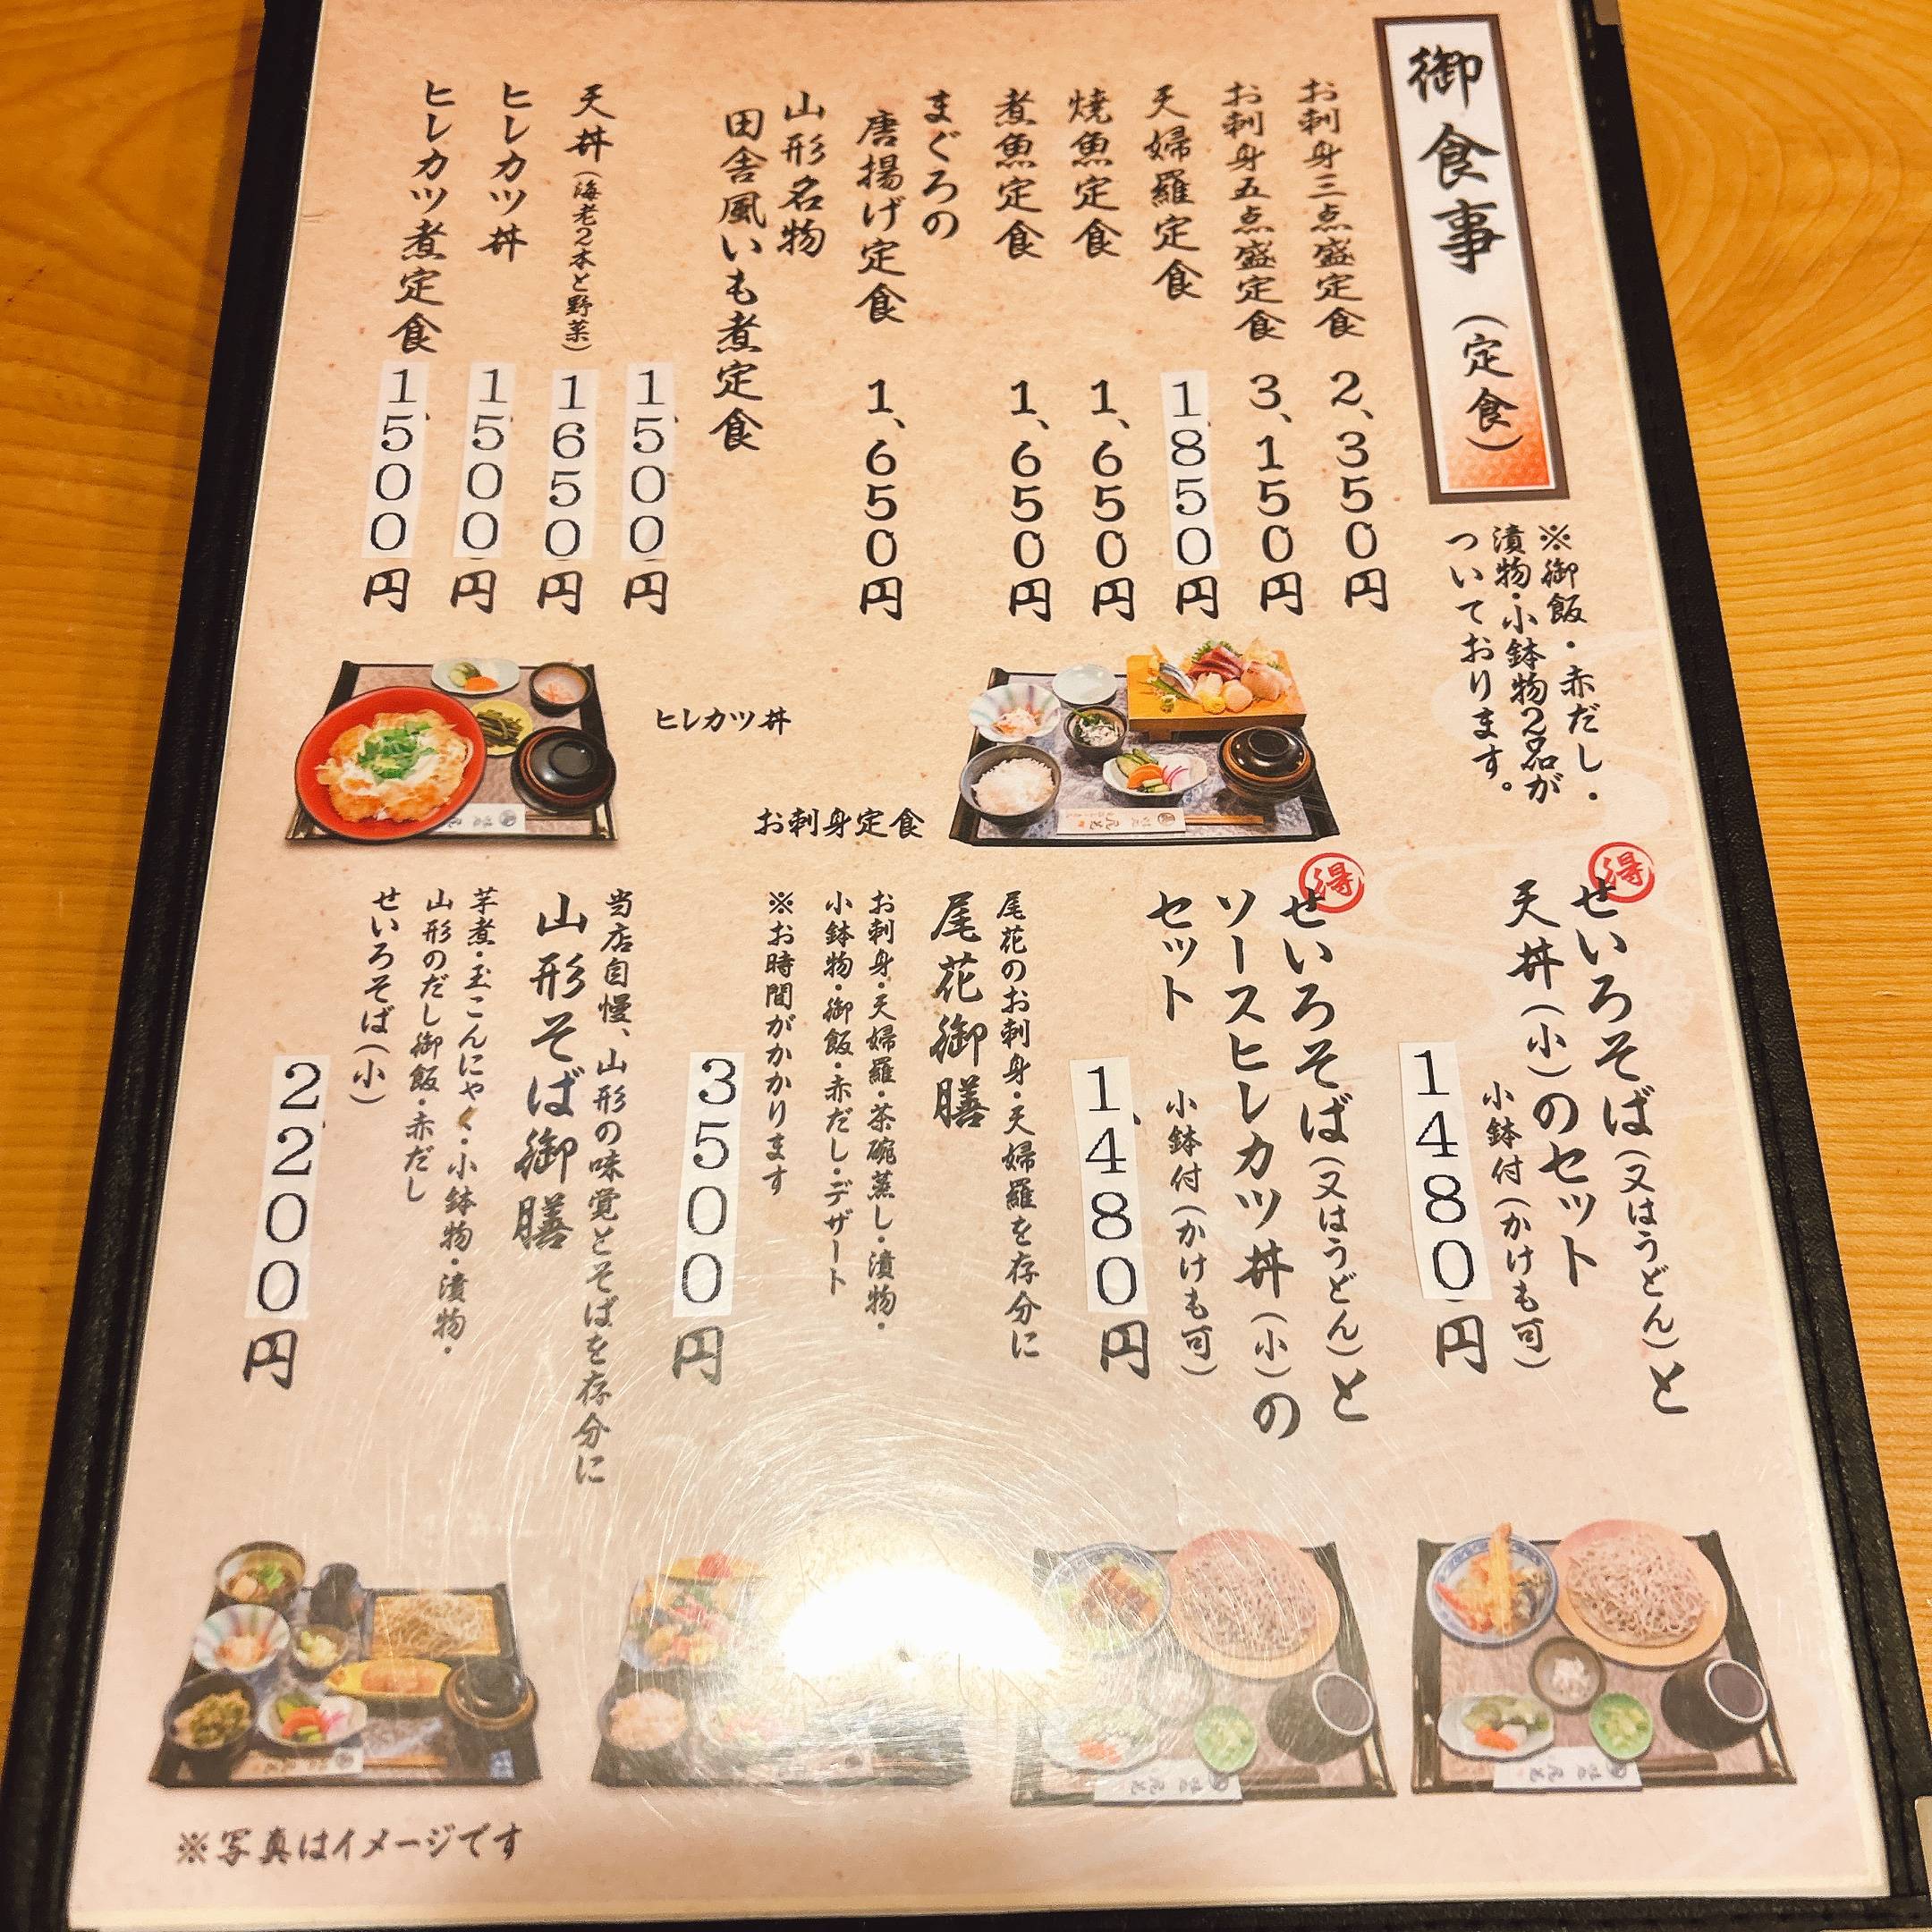 御食事（定食）
※御飯・赤だし・
漬物・小鉢物2品が
ついております。
お刺身三点盛定食 2、350円
お刺身五点盛定食 3、150円
天婦羅定食 1850円
焼魚定食 1、650円
煮魚定食 1、650円
まぐろの
唐揚げ定食 1、650円
山形名物
田舎風いも煮定食 1500円
天丼（海老2本と野菜） 1650円
ヒレカツ丼 1500円
ヒレカツ煮定食 1500円
お刺身定食
ヒレカツ丼
得
せいろそば（又はうどん）と
天丼（小）のセット
小鉢付（かけも可）
1480円
得
せいろそば（又はうどん）と
ソースヒレカツ丼（小）の
セット
小鉢付（かけも可）
1、480円
尾花のお刺身・天婦羅を存分に
尾花御膳
お刺身・天婦羅・茶碗蒸し・漬物・
小鉢物・御飯・赤だし・デザート
※お時間がかかります
3500円
当店自慢、山形の味覚とそばを存分に
山形そば御膳
芋煮・玉こんにゃく・小鉢物・漬物・
山形のだし御飯・赤だし
せいろそば（小）
2200円
※写真はイメージです